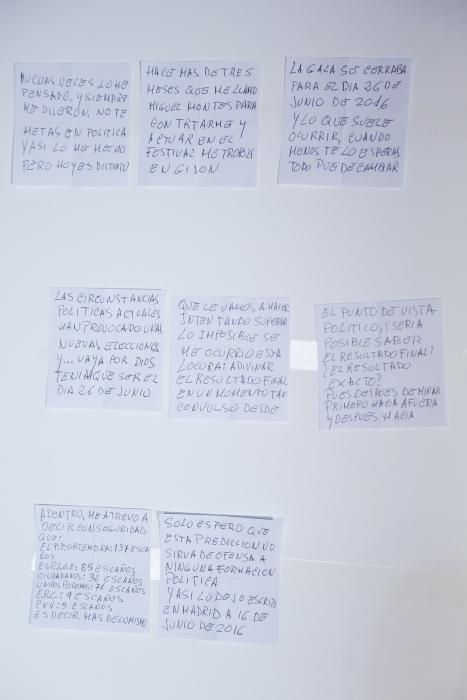 MUCHAS VECES LO HE
PENSADO, Y SIEMPRE
ME DIJERON, NO TE
METAS EN POLITICA
Y ASI LO HE HECHO
PERO HOY ES DISTINTO
HACE MAS DE TRES
MESES QUE ME LLAMO
MIGUEL MONTES PARA
CONTRTARME Y
ACTUAR EN EL
FESTIVAL METROPOLI
EN GIJON
LA GALA SE CERRABA
PARA EL DIA 26 DE
JUNIO DE 2016
Y LO QUE SUELE
OCURRIR, CUANDO
MENOS TE LO ESPERAS
TODO PUEDE CAMBIAR
LAS CIRCUNSTANCIAS
POLITICAS ACTUALES
HAN PROVOCADO UNAS
NUEVAS ELECCIONES
Y... VAYA POR DIOS
TENIA QUE SER EL
DIA 26 DE JUNIO
QUE LE VAMOS A HACER
INTENTANDO SUPERAR
LO IMPOSIBLE SE
ME OCURRIO ESTA
LOCURA: ADIVINAR
EL RESULTADO FINAL
EN UN MOMENTO TAN
CONVULSO DESDE
EL PUNTO DE VISTA
POLITICO, ¿SERIA
POSIBLE SABER
EL RESULTADO FINAL?
¿EL RESULTADO
EXACTO?
PUES DESPUES DE MIRAR
PRIMERO HACIA AFUERA
Y DESPUES HACIA
ADENTRO, ME ATREVO A
DECIR CON SEGURIDAD
QUE:
EL P.P. OBTENDRA: 137 ESCA
ÑOS
EL P.S.O.E: 85 ESCAÑOS
CIUDADANOS: 32 ESCAÑOS
UNIDOS PODEMOS: 71 ESCAÑOS
E.R.C.: 9 ESCAÑOS
PNV: 5 ESCAÑOS
ES DECIR MAS DE LO MISMO
SOLO ESPERO QUE
ESTA PREDICCION NO
SIRVA DE OFENSA A
NINGUNA FORMACION
POLITICA
Y ASI LO DEJO ESCRITO
EN MADRID A 16 DE
JUNIO DE 2016